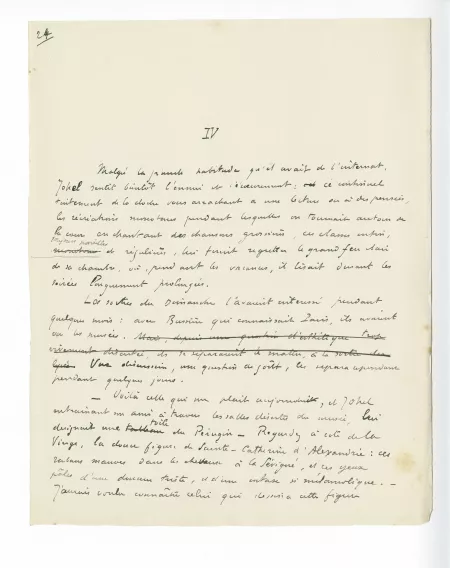 24
IV
Malgré la grande habitude qu'il avait de l'internat,
Johel sentit bientôt l'ennui et l'écœurement : ce continuel
tintement de la cloche vous arrachant à une lecture ou à des pensées,
les récréations monotones pendant lesquelles on tournait autour de
la cour en chantant des chansons grossières, ces classes
toujours pareilles
et régulières, lui firent regretter le grand feu clair
de sa chambre, où, pendant les vacances, il lisait durant les
soirées longuement prolongées.
Les sorties du Dimanche l'avaient intéressé pendant
quelques mois : avec Bussière qui connaissait Paris, ils avaient
vu les musées. Mais, depuis une question d'esthétique trop
vivement discutée, ils se séparaient le matin, à la sortie du
Une discussion, une question de goût, les sépara cependant
pendant quelques jours.
— Voilà celle qui me plaît aujourd'hui, et Johel
entraînant son ami à travers les salles désertes du musée, lui
toile
désignait une du Pérugin — Regardez à côté de la
Vierge, la douce figure de Sainte-Catherine d'Alexandrie : ces
rubans mauves dans les cheveux à la Sévigné, et ces yeux
pâles d'une douceur triste, et d'une extase si mélancolique. —
J'aurais voulu connaître celui qui rêva cette figure